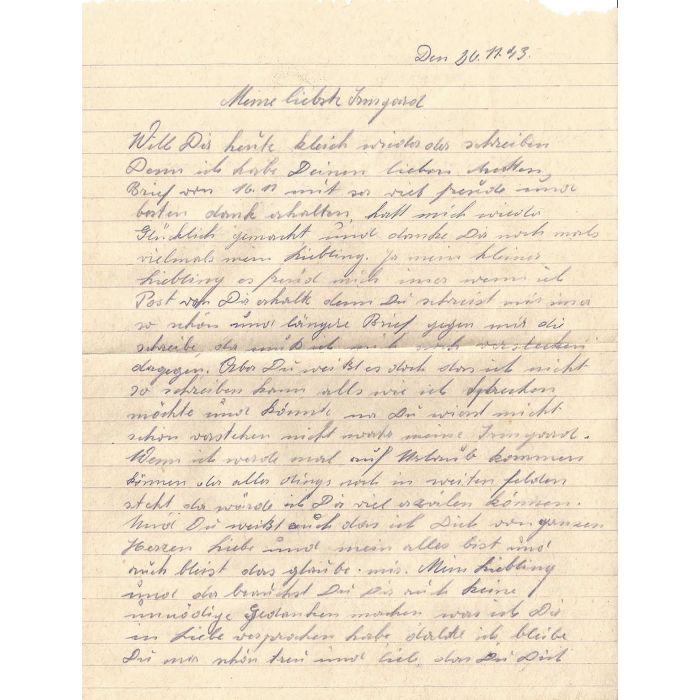 Den 26.11.43.
Meine liebste Irmgard
Will Dir heute kleich wieder der schreiben
Denn ich habe Deinen lieben netten
Brief von 16.11 mit so viel freude und
besten dank erhalten, hatt mich wieder
Glücklich gemacht und danke Dir noch mals
vielmals mein Liebling. Ja mein kleiner
Liebling es freud mich imer wenn ich
Post von Dir erhalte denn Du schreist mir imer
so schön und längere Brief gegen mir die
schreibe, da muß ich mich noch verstecken
dagegen. Aber Du weißt es doch das ich nicht
so schreiben kann alls wie ich sprechen
möchte und könnte na Du wirst mich
schon verstehen nicht wahr meine Irmgard.
Wenn ich werde mal auf Urlaub kommen
können der aller dings noch in weiten felden
steht da würde ich Dir viel erzälen können.
Und Du weißt auch das ich Dich von ganzen
Herzen Liebe und mein alles bist und
auch bleist das glaube mir. Mein Liebling
und da brauchst Du Dir auch keine
unnödige Gedanken machen was ich Dir
in Liebe versprochen habe dalte ich, bleibe
Du mir schön treu und lieb, das Du Dich